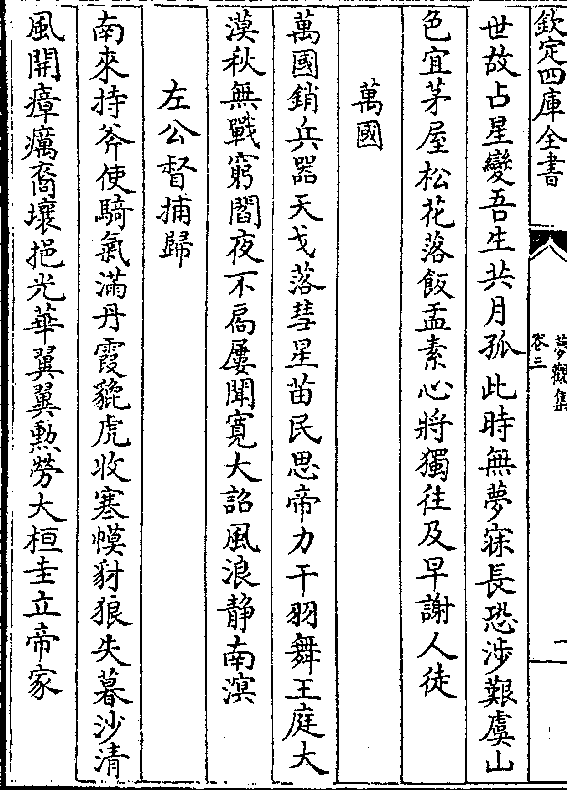 欽定四庫全書
夢觀集
卷三
一
世故占星變吾生共月孤此時無夢寐長恐涉艱虞山
色宜茅屋松花落飯盂素心將獨往及早謝人徒
萬國
萬國銷兵器天戈落彗星苗民思帝力干羽舞王庭大
漠秋無戰窮閻夜不扃屢聞寛大詔風浪静南溟
左公督捕歸
南來持斧使騎氣滿丹霞貔虎收塞幙豺狼失暮沙清
風開瘴癘裔壤挹光華翼翼勲勞大桓圭立帝家